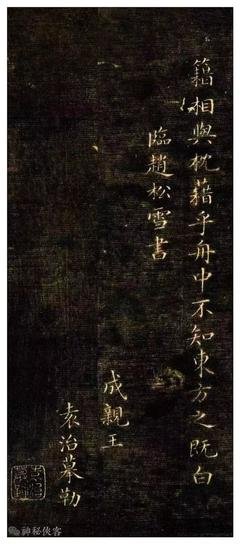 籍相與枕藉乎舟中不知東方之既白
臨趙松雪書
成親王
袁治摹勒
神秘俠客